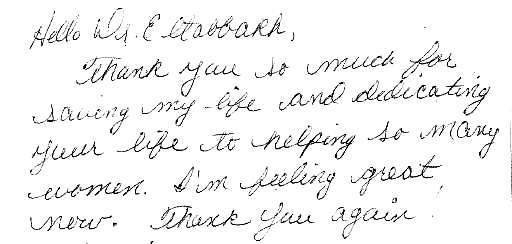 Hello Dr. Eltabbakh,
Thank you so much for
saving my life and dedicating
your life to helping so many
women. I'm feeling great
now. Thank you again!